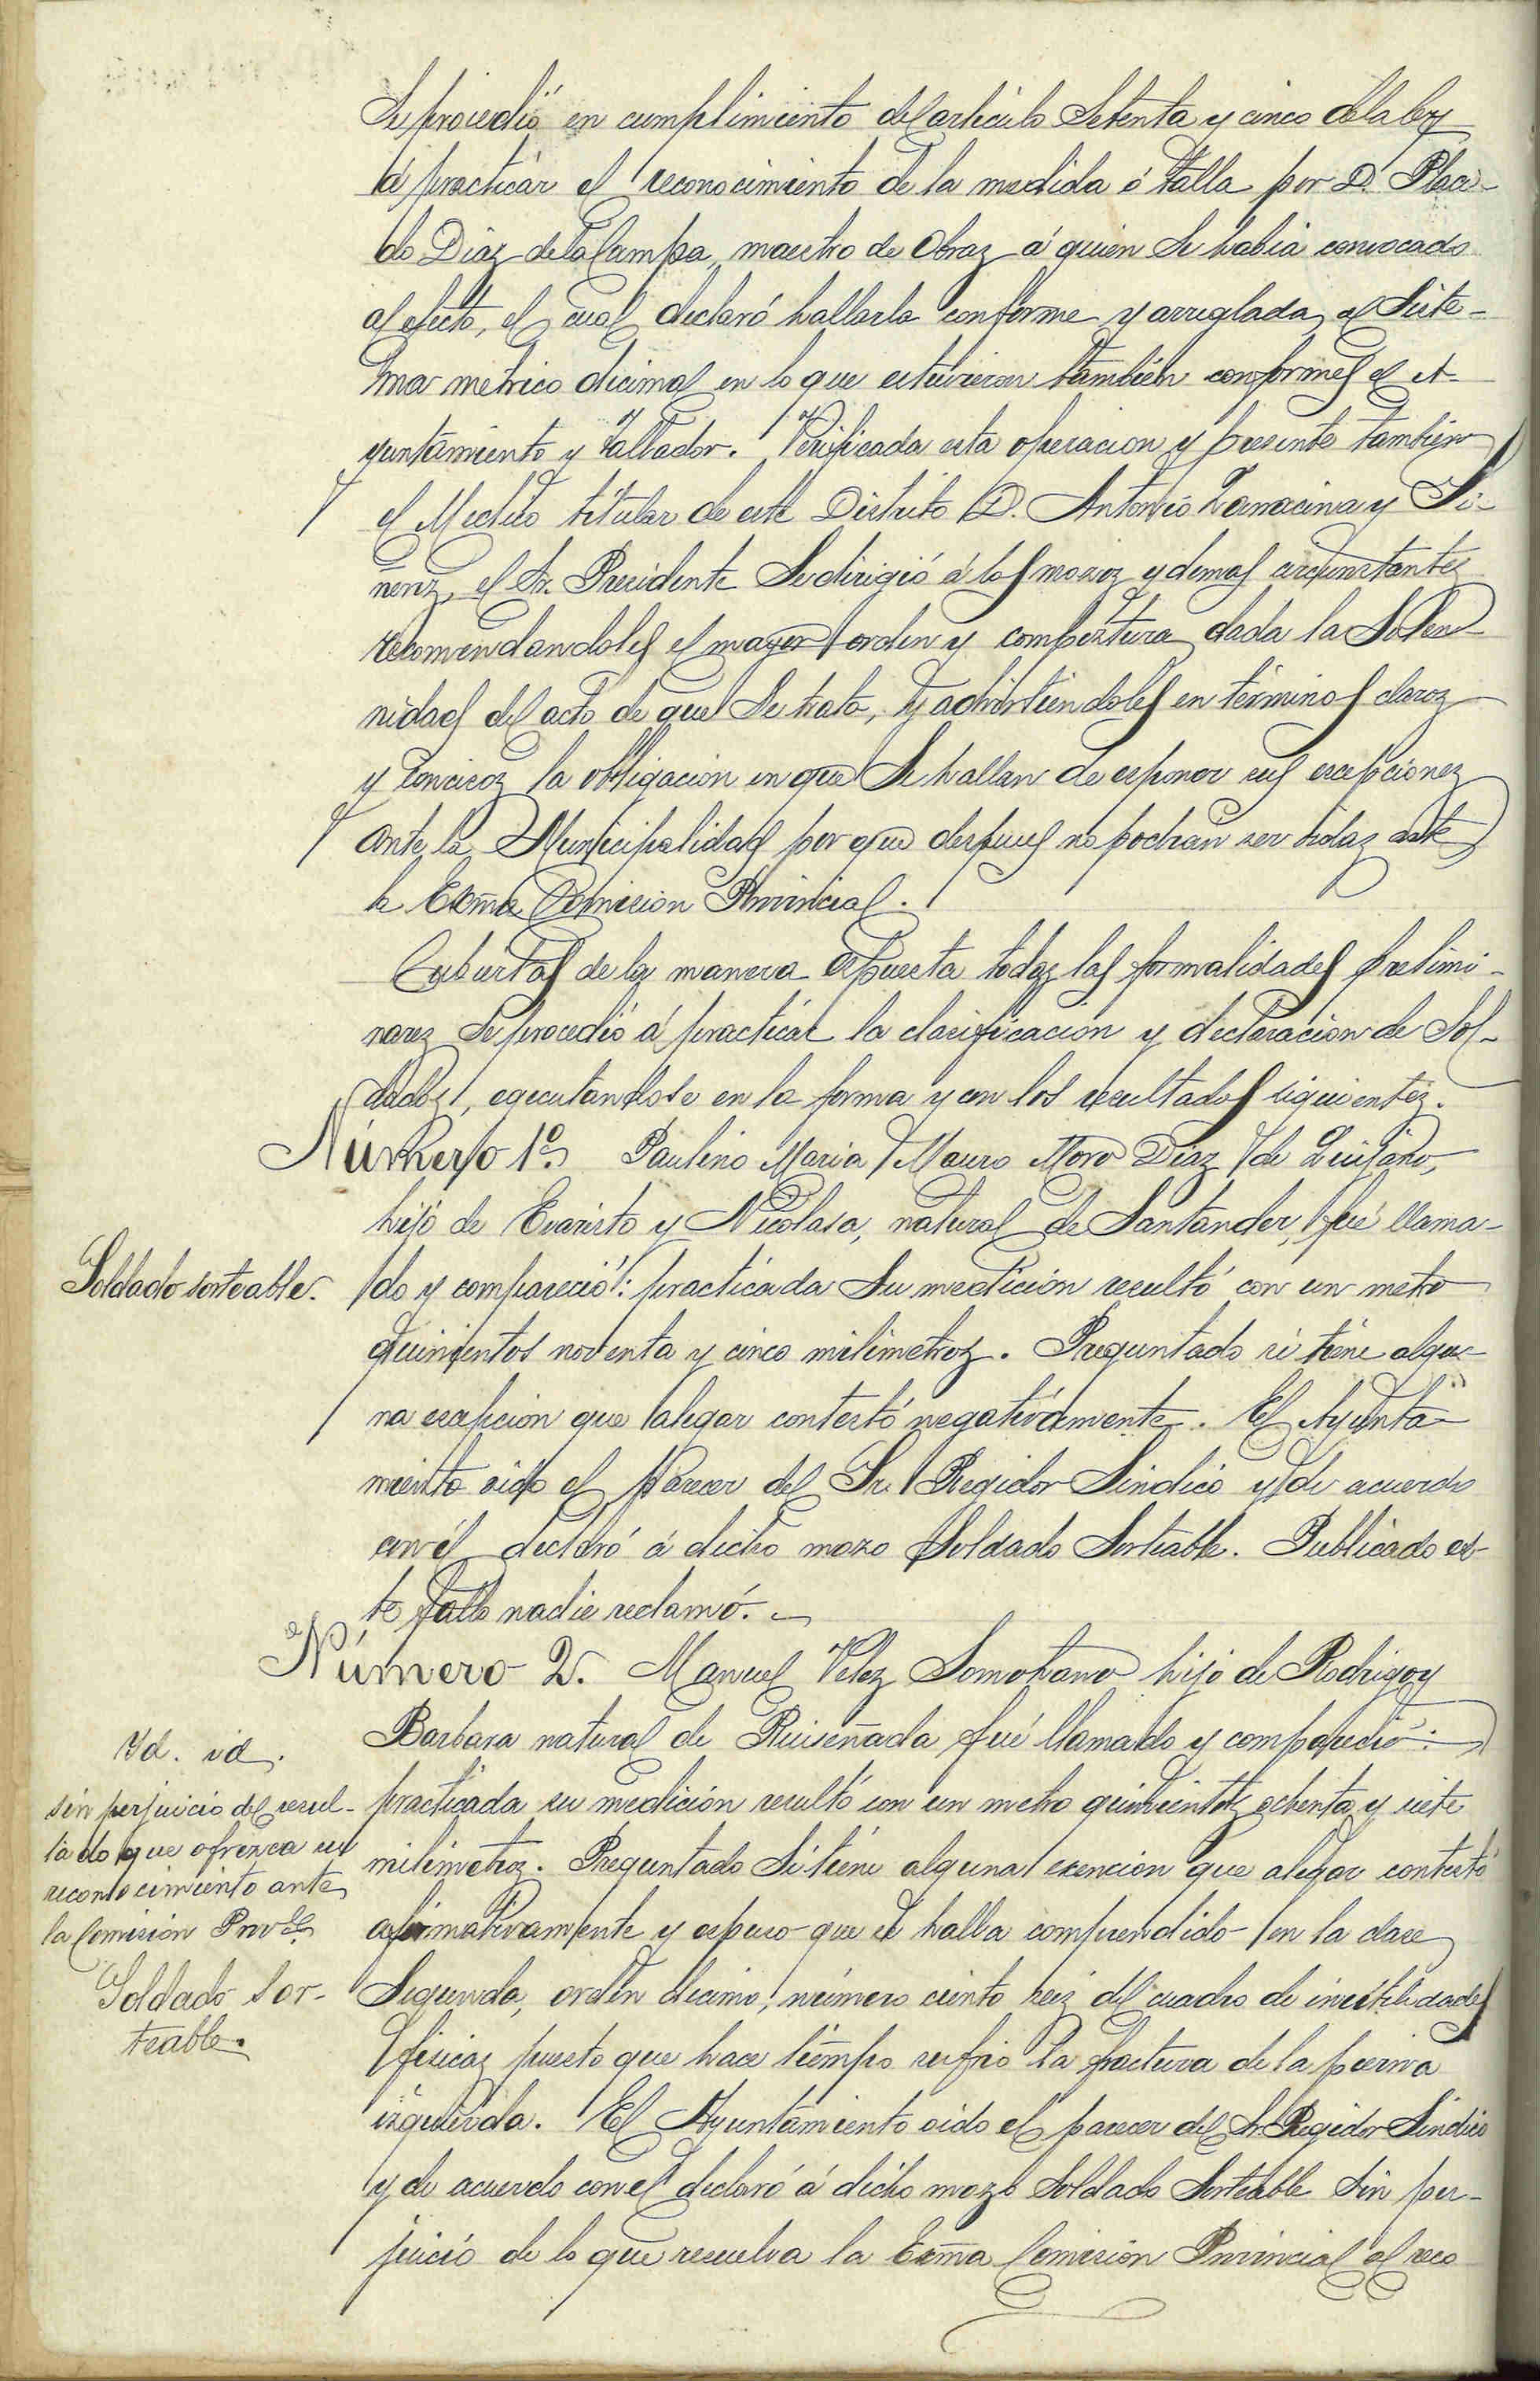 Se procedió en cumplimiento del artículo Setenta y cinco dela ley
á practicar el reconocimiento de la medida ó talla por D. Placi-
do Diaz dela Campa, maestro de Obraz á quien se habia convocado
al efecto, el cual declaró hallarla conforme y arreglada al Siste-
ma metrico decimal en lo que estuvieron también conformes el A-
yuntamiento y tallador. Verificada esta operacion y presente también
el Medico titular de este Distrito D. Antonio y
el Sr. Presidente Se dirigió á los mozoz y demas circunstantez
recomendandoles el mayor orden y compostura dada la Solem-
nidad del acto de que Se trata, y advirtiéndoles en términos claroz
y concisoz la obligación en que Se hallan de esponer sus escepcionez
ante la Municipalidad por que despues no podran ser oidaz ante
la Exma Comision Provincial.
Cubiertas de la manera espuesta todaz las formalidades prelimi-
narez Se procedió á practicar la clasificación y declaracion de Sol-
dadoz, egecutandose en la forma y con los resultados siguientez.
Número 1º Paulino Maria Mauro Moro Diaz de Quijano,
hijo de Evaristo y Nicolasa, natural de Santander, fué llama-
Soldado sorteable.
do y compareció: practicada Su medición resultó con un metro
quinientos noventa y cinco milimetroz. Preguntado si tiene algu-
na escepcion que alegar contestó negativamente. El Ayunta-
miento oido el parecer del Sr. Regidor Sindico y de acuerdo
con él declaró á dicho mozo Soldado Sorteable. Publicado es-
te fallo nadie reclamó.
Número 2. Manuel Velez Somohano hijo de Rodrigo y
Barbara natural de Ruiseñada fué llamado y compareció:
Yd. id.
sin perjuicio del resul-
tado que ofrezca su
reconocimiento ante
la Comisión Proval.
Soldado Sor-
teable.
practicada su medición resultó con un metro quinientoz ochenta y siete
milimetroz. Preguntado Si tiene alguna exencion que alegar contestó
afirmativamente y espuso que se halla comprendido en la clase
Segunda, orden decimo, número ciento seiz del cuadro de inutilidades
fisicaz puesto que hace tiempo sufrio la fractura de la pierna
izquierda. El Ayuntamiento oido el parecer del Sr. Regidor Sindico
y de acuerdo con el declaró á dicho mozo Soldado Sorteable Sin per-
juicio de lo que resuelva la Exma Comision Provincial al reco